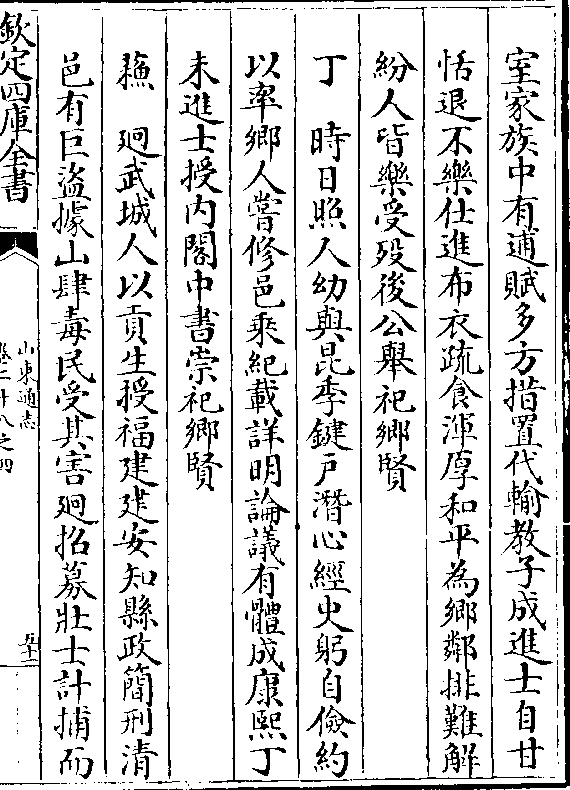 室家族中有逋賦多方措置代輸教子成進士自甘
恬退不樂仕進布衣疏食渾厚和平為鄉鄰排難解
紛人皆樂受殁後公舉祀鄉賢
丁　時日照人幼與昆季鍵戸潛心經史躬自儉約
以率鄉人嘗修邑乘紀載詳明論議有體成康熙丁
未進士授内閣中書崇祀鄉賢
蘓　廻武城人以貢生授福建建安知縣政簡刑清
邑有巨盜據山肆毒民受其害廻招募壯士計捕而
欽定四庫全書
山東通志
卷二十八之四